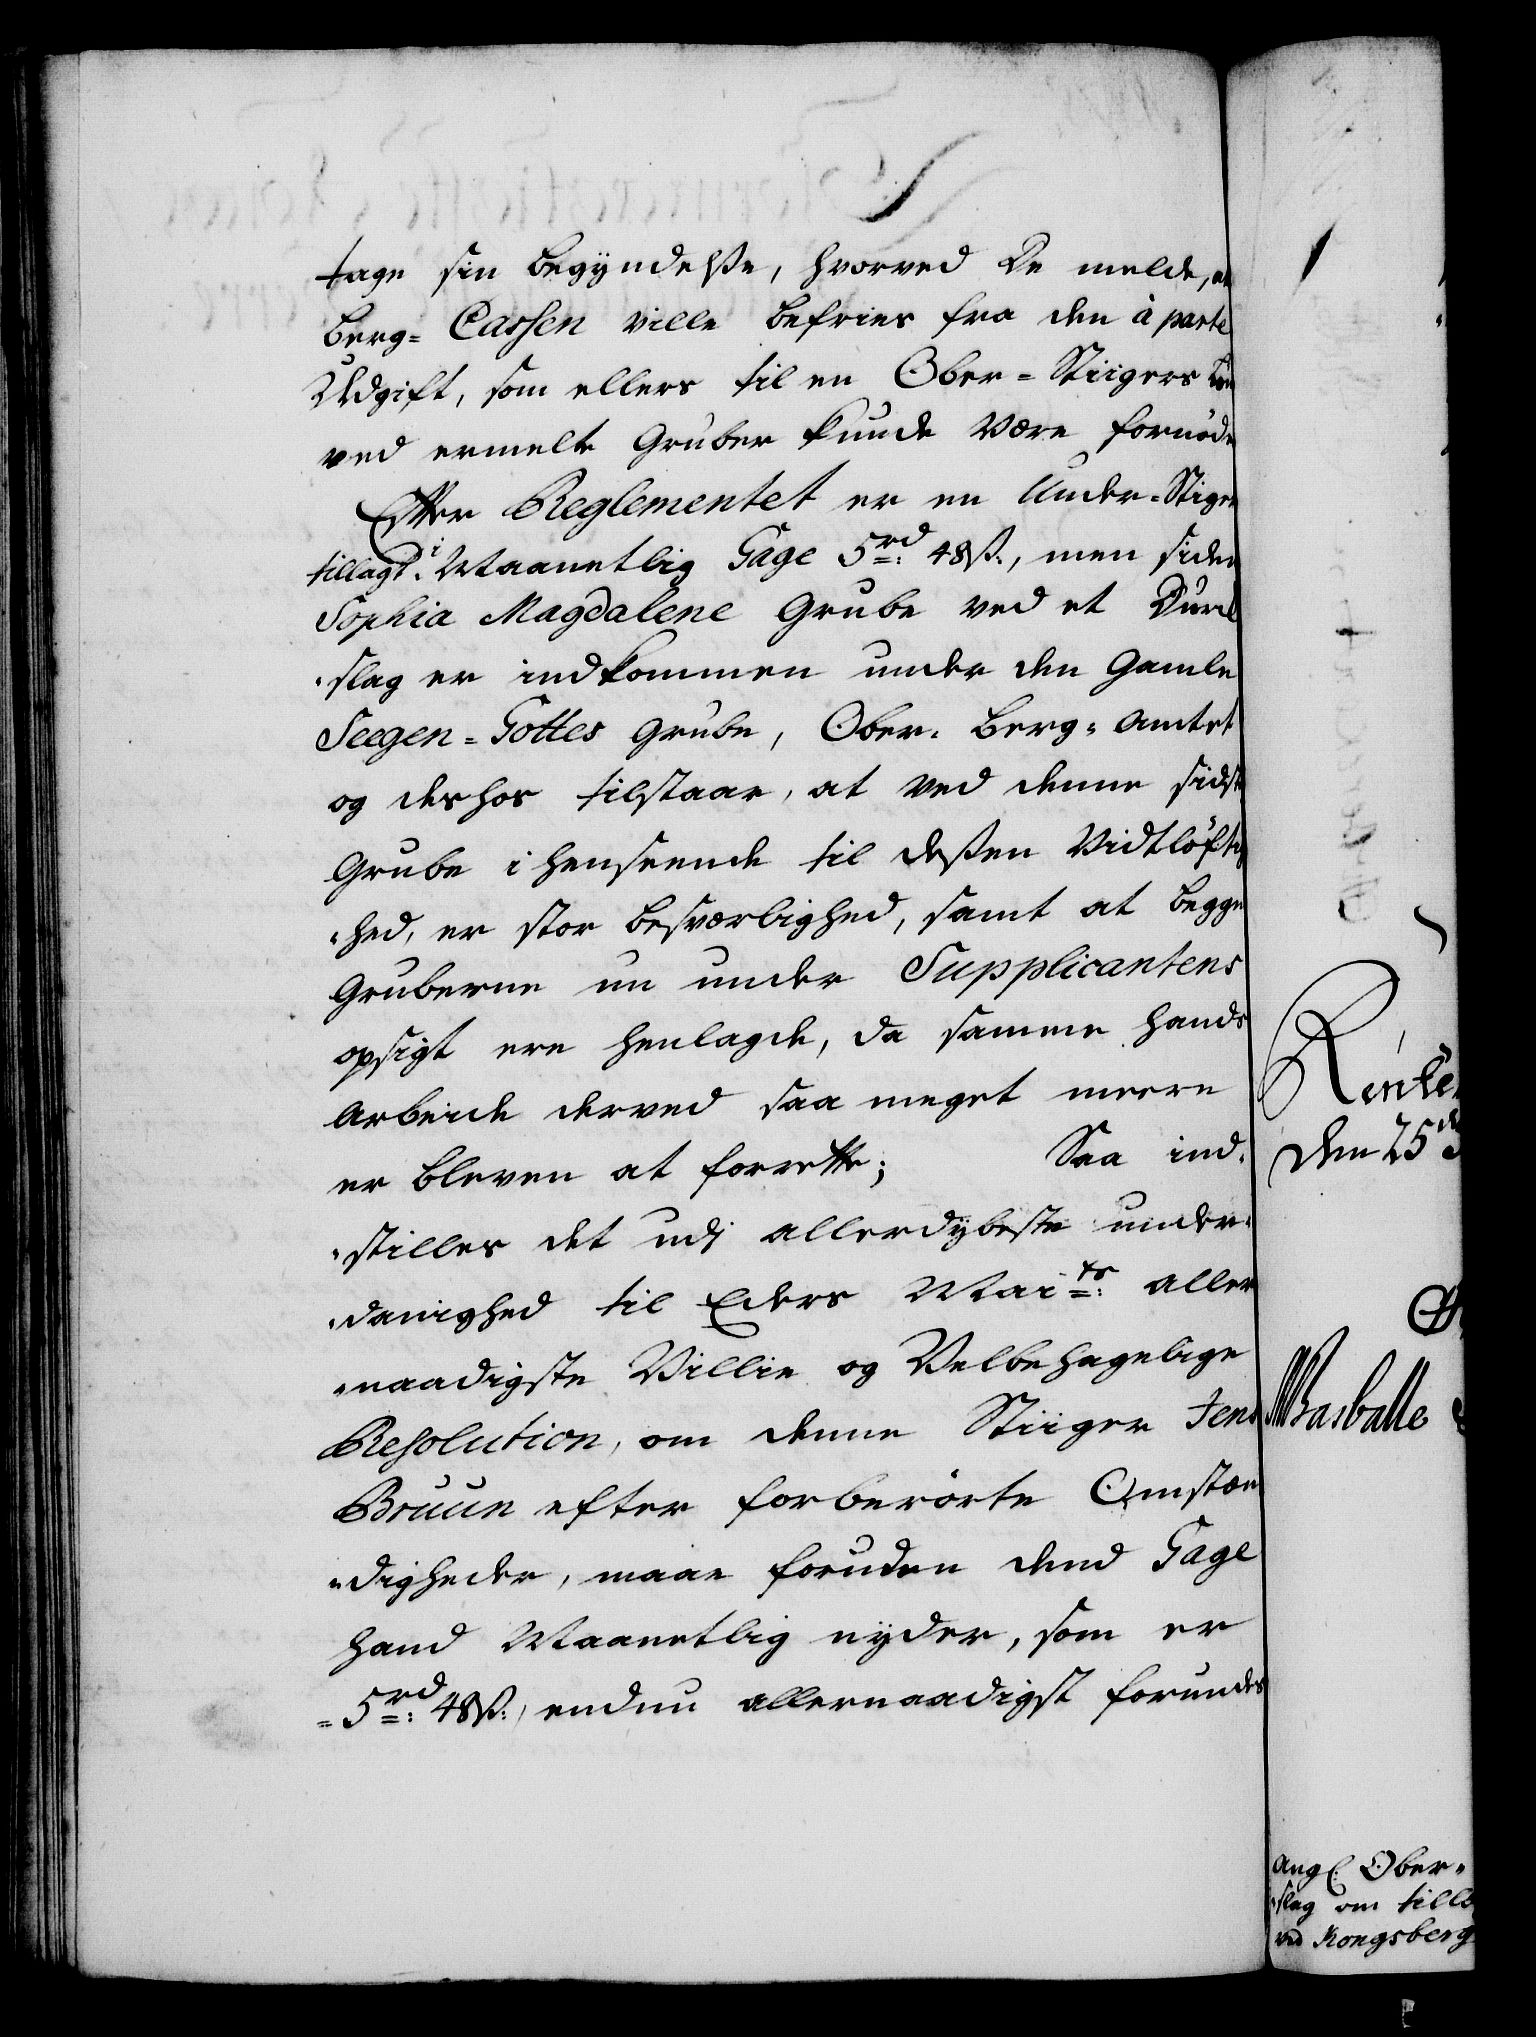 tage sin begyndelße, hvorved De melde, at
Berg= Cassen ville befries fra den à parte
Udgift, som ellers til en Ober=Stiigers
ved ermelte Gruber kunde være fornöde
Efter Reglementet er en Under=Stiger
tillagt i Maanetlig Gage 5rd 48ß:, men siden
Sophia Magdalene Grube ved et Durch
slag er indkommen under den Gamle
Seegen=Gottes Grube, Ober= Berg= Amtet
og deshos tilstaar, at ved denne sidste
Grube i henseende til deßen Vidtlöftig
hed, er stor besværlighed, samt at begge
Gruberne nu under Supplicantens
opsigt ere henlagde, da samme hands
Arbeide derved saa meget meere
er bleven at forrette; Saa ind=
stilles det udj allerdybeste under=
danighed til Eders Maits: aller
naadigste Villie og Velbehagelige
Resolution, om denne Stiiger Jens
Bruun efter forberörte Omstæn
digheder, maae foruden dend Gage
hand Maanetlig nyder, som er
5rd 48ß:, endnu allernaadigst forundes
den 25de
Basballe
Angl. Ober=
slag om till
ved Kongsberg